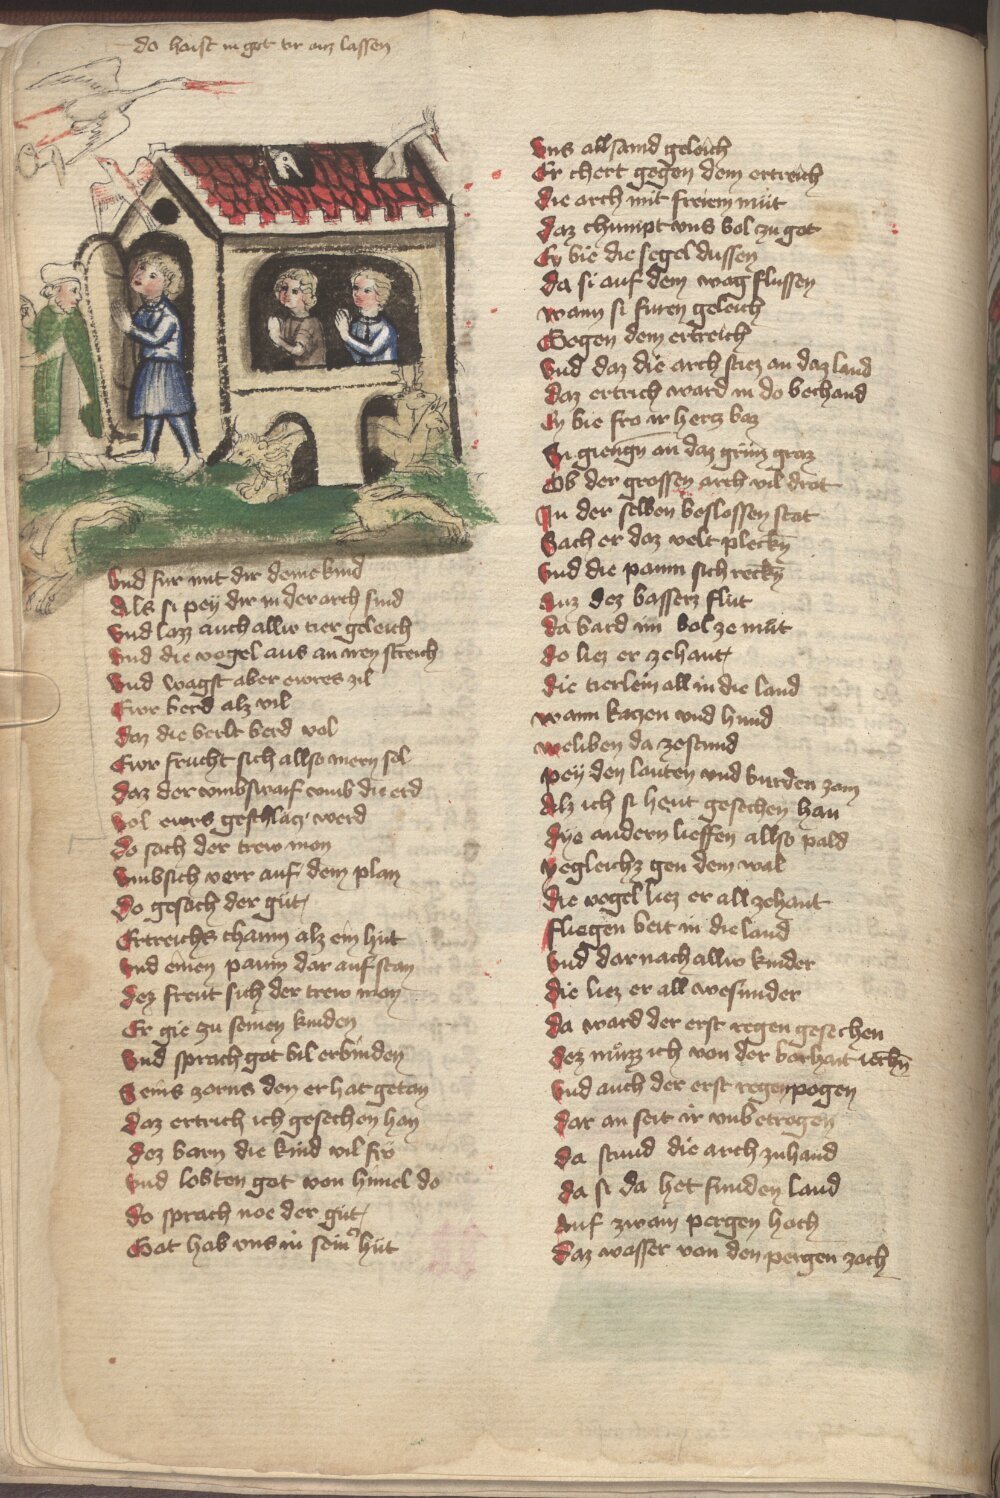 do haist in got tir auz lassen
Vnd fur mit dir deine kind
Als si pey dir in der arch sind
Vnd lazz auch alliv tier geleich
Vnd die vogel aus an iren streich
Vnd wagst aber ewres zil
Ewr berd alz vil
Daz die berlt berd vol
Ewr frucht sich allso mern sol
Daz der vmbswaif vmb die erd
Vol ewrs geschlacz werd
Do sach der trew mon
Vmb sich verr auf dem plan
Do gesach der gut
Ertreichs chaum alz ein hut
Vnd einen paum dar auf stan
Dez freut sich der trew man
Er gie zu seinen kinden
Vnd sprach got bil erbinden
Seins zorns den er hat getan
Daz ertrich ich gesechen han
Dez barn die kind vil fro
Vnd lobten got von himel do
Do sprach noe der gut
Got hab vns in seiner hut
Vns allsamd geleich
Er chert gegen dem ertreich
Die arch mit freiem mut
Daz chumpt vns bol zu got
Ey bie die segel dussen
Da si auf dem wag flussen
Wann si furen geleich
Gegen dem ertreich
Vnd daz die arch stiez an daz land
Daz ertrich ward in do bechand
Ey bie fro ir hercz baz
Si giengn an daz grün graz
Ob der grossen arch vil drot
In der selben beslossen stat
Sach er daz velt pleckn
Vnd die paum sich reckn
Auz dez bassers flut
Da bard im bol ze mut
Do liez er zehant
Die tierlein all in die land
Wann kaczen vnd hund
Weliben da zestund
Pey den lauten vnd burden zam
Alz ich si heut gesechen han
Dye andern lieffen allso pald
Yegleichz gen dem wal
Die vogel liez er all zehant
Fliegen beit in die land
Vnd dar nach alliv kinder
Die liez er all wesunder
Da ward der erst regen gesechen
Dez muzz ich von der barhait iechn
Vnd auch der erst regenpogen
Dar an seit ir vnbetrogen
Da stund die arch zuhand
Da si da het funden land
Auf zwain pergen hoch
Daz wasser von den pergen zoch